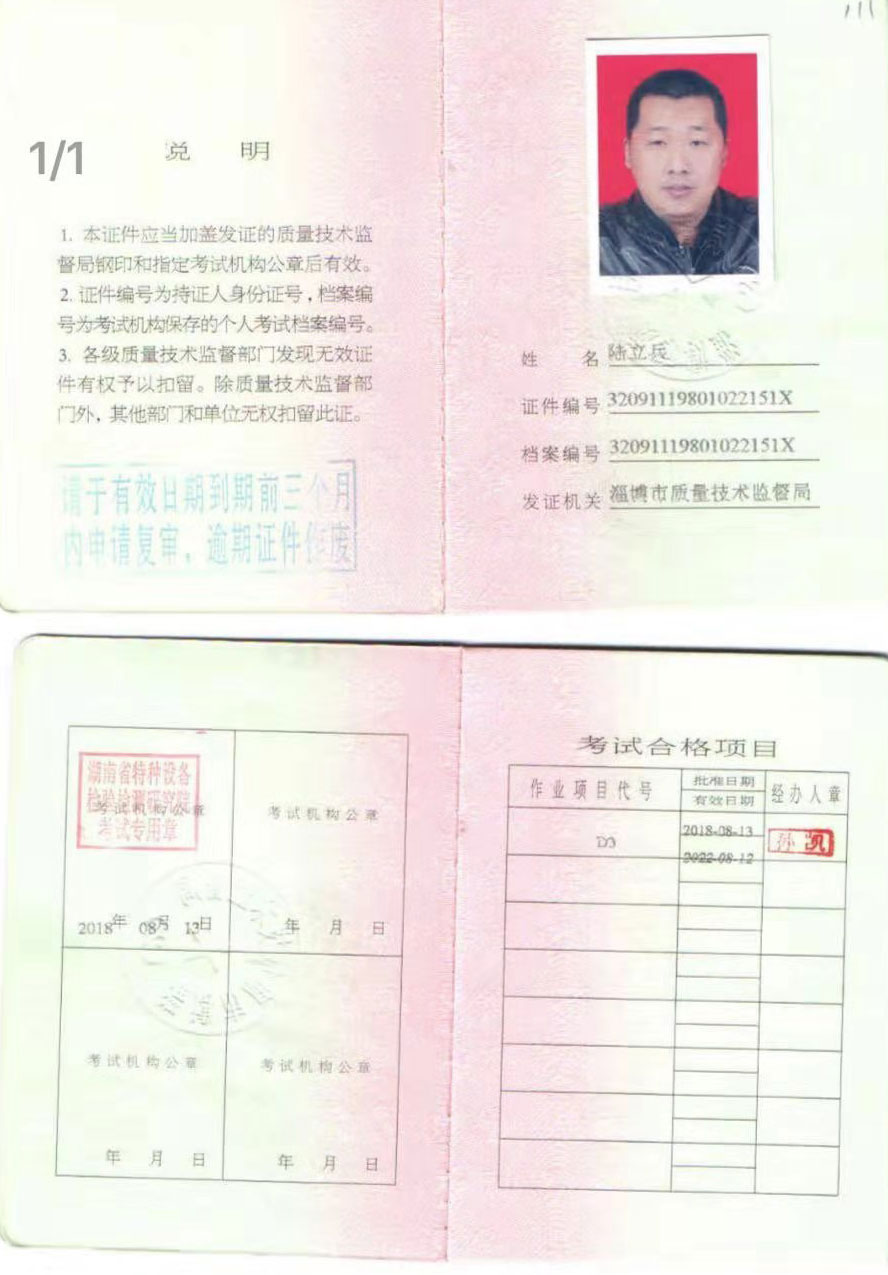 1/1
说 明
1. 本证件应当加盖发证的质量技术监
督局钢印和指定考试机构公章后有效。
2. 证件编号为持证人身份证号，档案编
号为考试机构保存的个人考试档案编号。
3. 各级质量技术监督部门发现无效证
件有权予以扣留。除质量技术监督部
门外，其他部门和单位无权扣留此证。
请于有效日期到期前三个月
内申请复审，逾期证件作废
姓 名 陆立兵
证件编号 32091119801022151X
档案编号 32091119801022151X
发证机关 淄博市质量技术监督局
湖南省特种设备
检验检测研究院
考试专用章
考试机构公章
2018年 08月 13日
考试机构公章
年 月 日
考试机构公章
年 月 日
考试机构公章
年 月 日
考试合格项目
作业项目代号 批准日期 有效日期 经办人章
D3 2018-08-13 孙凯
2022-08-12